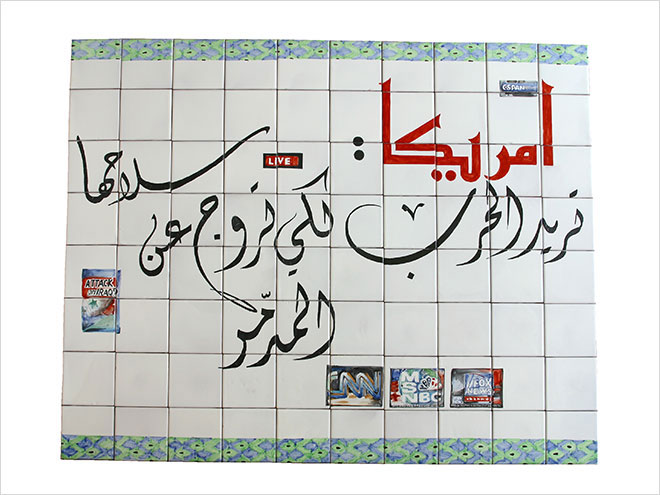 CSPAN
امريكا :
LIVE
تريد الحرب لكي تروج عن سلاحها
المدمّر
ATTACK
ON IRAQ
CNN
MSNBC
FOX
NEWS
channel